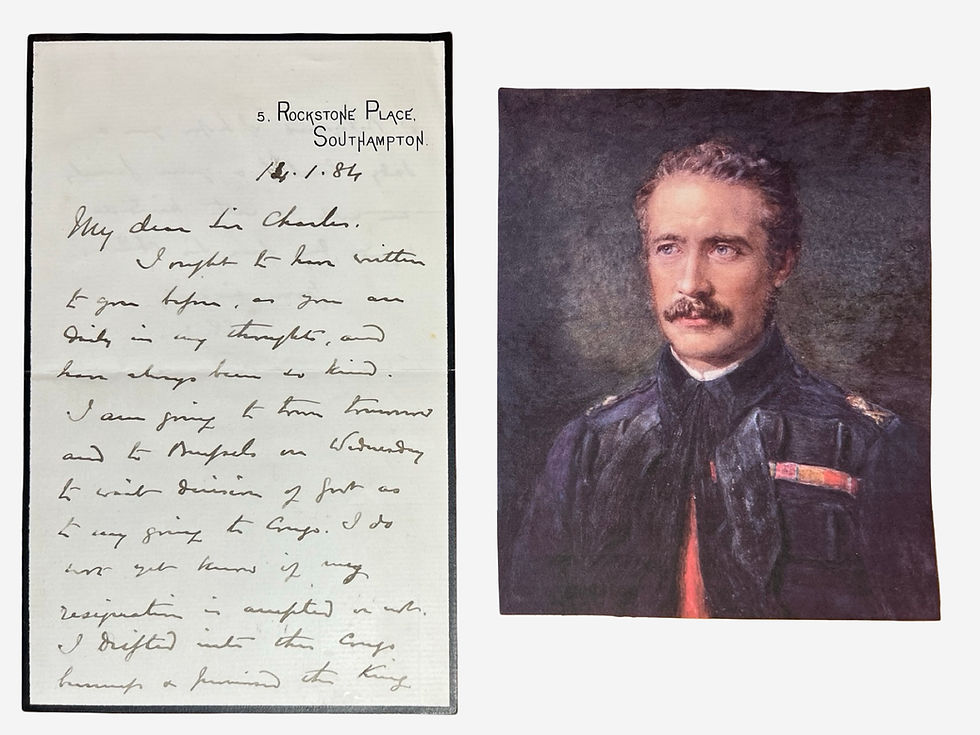 5. ROCKSTONE PLACE,
SOUTHAMPTON.
14.1.84
My dear Sir Charles.
I ought to have written
to you before, as you are
daily in my thoughts, and
have always been so kind.
I am going to town tomorrow
and to Brussels on Wednesday
to wait decision of Govt as
to my going to Congo. I do
not yet know if my
resignation is accepted or not.
I drifted into this Congo
business & promised the King